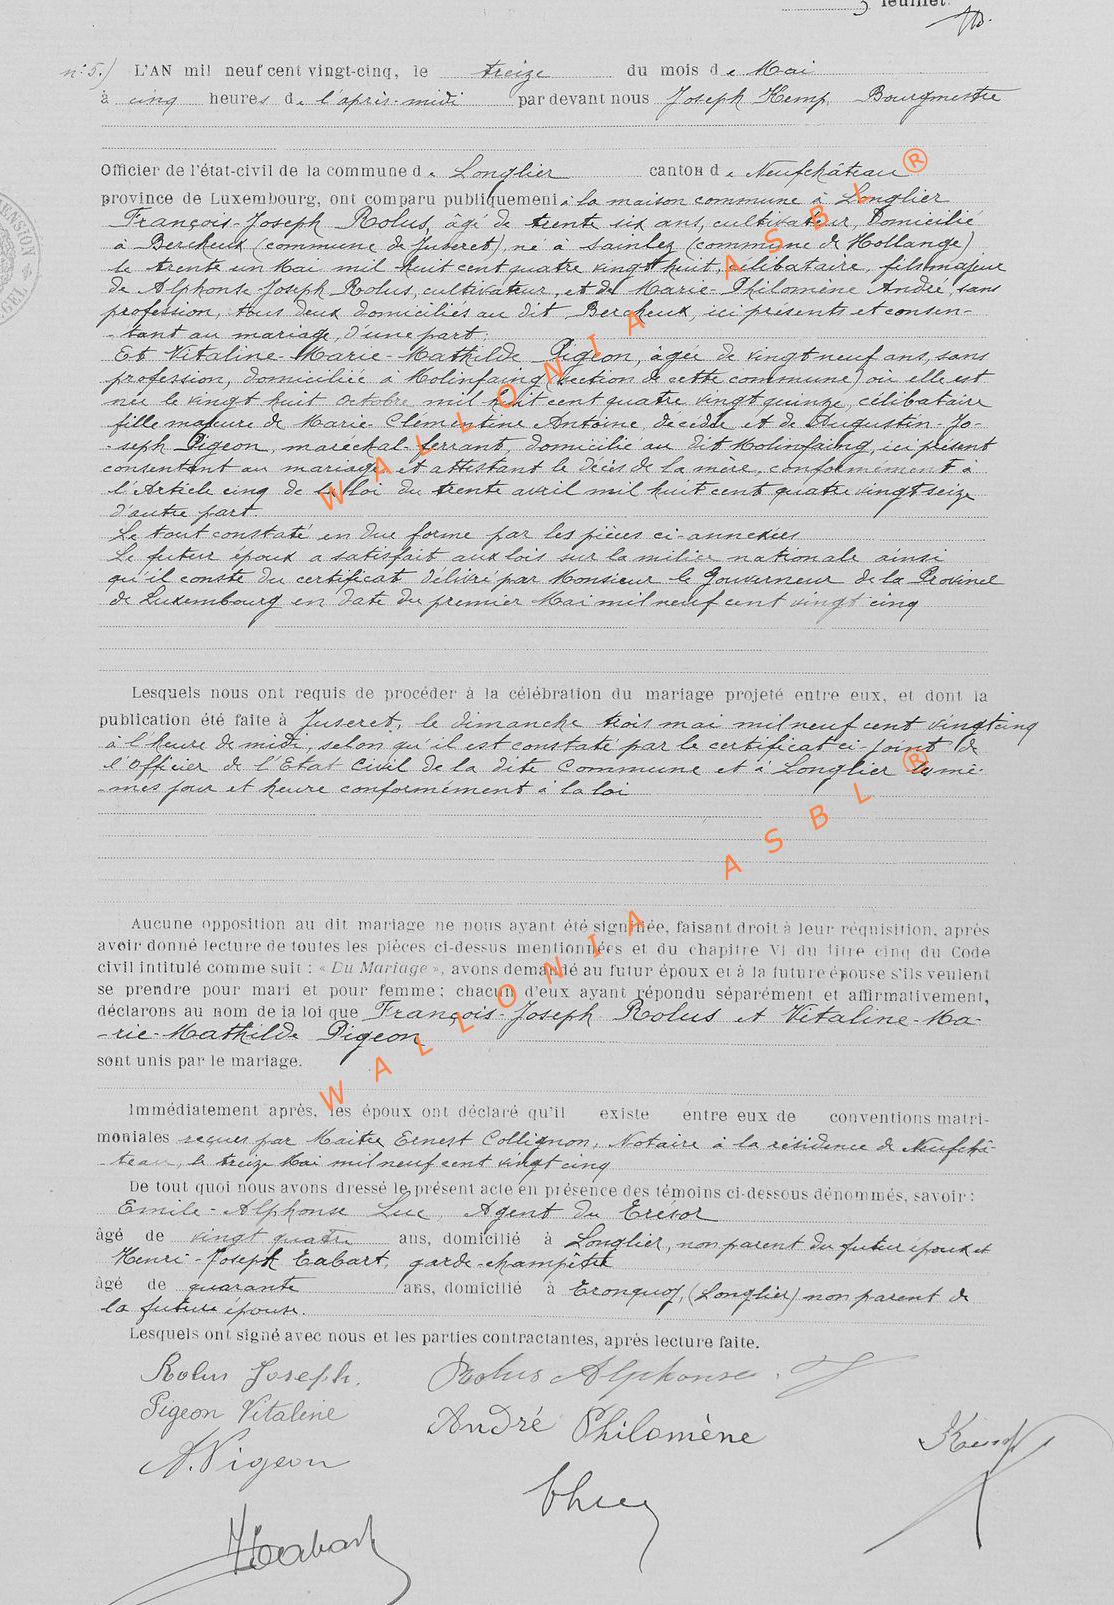 5 feuillet.
n° 5.) L'AN mil neuf cent vingt-cinq, le treize du mois de Mai
à cinq heures de l'après-midi par devant nous Joseph Kemp, Bourgmestre
Officier de l'état-civil de la commune de Longlier canton de Neufchâteau
province de Luxembourg, ont comparu publiquement à la maison commune à Longlier
François-Joseph Rolus, âgé de trente six ans, cultivateur, domicilié
à Bercheux (commune de Juseret), né à Sainlez (commune de Hollange)
le trente un Mai mil huit cent quatre vingt huit, célibataire, fils majeur
de Alphonse-Joseph Rolus, cultivateur, et de Marie-Philomène André, sans
profession, tous deux domiciliés au dit Bercheux, ici présents et consen-
-tant au mariage, d'une part.
Et Vitaline-Marie-Mathilde Pigeon, âgée de vingt neuf ans, sans
profession, domiciliée à Molinfaing (section de cette commune) où elle est
née le vingt huit octobre mil huit cent quatre vingt quinze, célibataire
fille majeure de Marie-Clémentine Antoine, décédée et de Augustin-Jo-
-seph Pigeon, maréchal-ferrant, domicilié au dit Molinfaing, ici présent
consentant au mariage et attestant le décès de la mère, conformément à
l'Article cinq de la loi du trente avril mil huit cent quatre vingt seize
d'autre part.
Le tout constaté en due forme par les pièces ci-annexées
Le futur époux a satisfait aux lois sur la milice nationale ainsi
qu'il conste du certificat délivré par Monsieur le Gouverneur de la Province
de Luxembourg en date du premier Mai mil neuf cent vingt cinq
Lesquels nous ont requis de procéder à la célébration du mariage projeté entre eux, et dont la
publication été faite à Juseret, le dimanche trois mai mil neuf cent vingt cinq
à l'heure de midi, selon qu'il est constaté par le certificat ci-joint de
l'Officier de l'Etat Civil de la dite Commune et à Longlier les mê-
-mes jour et heure conformément à la loi
Aucune opposition au dit mariage ne nous ayant été signifiée, faisant droit à leur réquisition, après
avoir donné lecture de toutes les pièces ci-dessus mentionnées et du chapitre VI du titre cinq du Code
civil intitulé comme suit : « Du Mariage », avons demandé au futur époux et à la future épouse s'ils veulent
se prendre pour mari et pour femme ; chacun d'eux ayant répondu séparément et affirmativement,
déclarons au nom de la loi que François-Joseph Rolus et Vitaline-Ma-
-rie-Mathilde Pigeon
sont unis par le mariage.
Immédiatement après, les époux ont déclaré qu'il existe entre eux de conventions matri-
moniales reçues par Maître Ernest Collignon, Notaire à la résidence de Neufchâ-
-teau, le treize Mai mil neuf cent vingt cinq
De tout quoi nous avons dressé le présent acte en présence des témoins ci-dessous dénommés, savoir :
Emile-Alphonse Luc, Agent du Trésor
âgé de vingt quatre ans, domicilié à Longlier, non parent du futur époux et
Henri-Joseph Tabart, garde-champêtre
âgé de quarante ans, domicilié à Tronquoy (Longlier) non parent de
la future épouse.
Lesquels ont signé avec nous et les parties contractantes, après lecture faite.
Rolus Joseph. Rolus Alphonse. J
Pigeon Vitaline André Philomène
A. Pigeon Kemp
WALLONIA ASBL ®
WALLONIA ASBL ®